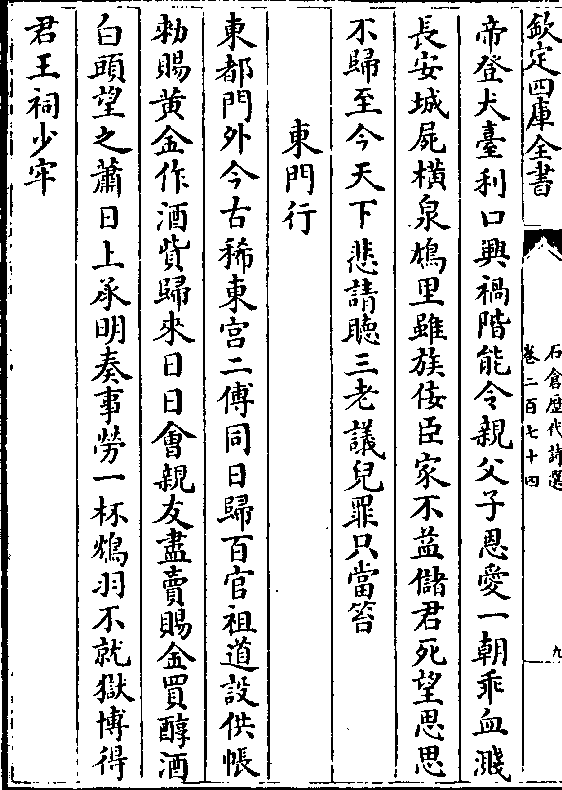 欽定四庫全書
石倉歴代詩選
卷二百七十四
九
帝登犬臺利口興禍階能令親父子恩愛一朝乖血濺
長安城屍橫泉鳩里雖族佞臣家不益儲君死望思思
不歸至今天下悲請聽三老議兒罪只當笞
東門行
東都門外今古稀東宫二傅同日歸百官祖道設供帳
勑賜黄金作酒貲歸來日日會親友盡賣賜金買醇酒
白頭望之蕭日上承明奏事勞一杯鴆羽不就獄博得
君王祠少牢